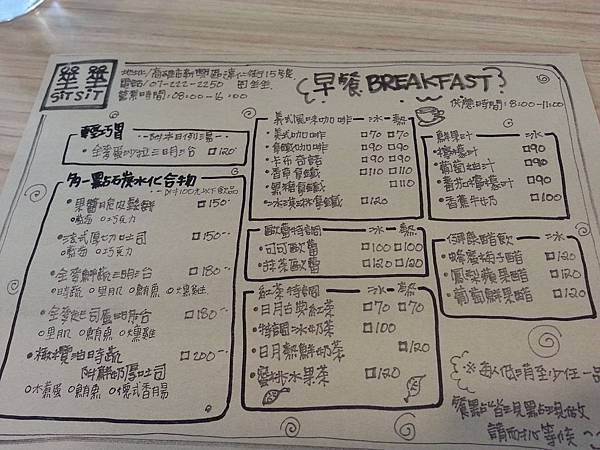 SIT SIT
地址/高雄市新興區漢仁街15號
電話/07-222-2250
營業時間:08:00~16:00
早餐 BREAKFAST
供應時間:8:00-11:00
輕巧胃
附本日例湯
•全麥蛋沙拉三明治 □120
多一點碳水化合物
附100元以下飲品
•果醬脆皮鬆餅 □150
○巧克力
•法式厚切吐司 □150
○巧克力
•全麥鮮蔬三明治 □180
○時蔬 ○里肌 ○鮪魚 ○燻雞
•全麥起司蛋三明治 □180
○里肌 ○鮪魚 ○燻雞
•橄欖油時蔬 □200
附鮮奶厚吐司
○水煮蛋 ○鮪魚 ○德式香腸
義式風味咖啡 冰 熱
•美式咖啡 □70 □70
•拿鐵咖啡 □90 □90
•卡布奇諾 □90 □90
•香草拿鐵 □110 □110
•黑糖拿鐵 □110
•冰淇淋拿鐵 □120
歐蕾特調 冰 熱
•可可歐蕾 □100 □100
•抹茶歐蕾 □120 □120
紅茶特調 冰 熱
•日月古典紅茶 □70 □70
•特調冰奶茶 □100
•日月熱鮮奶茶 □120
•蜜桃冰果茶 □120
鮮果汁 冰
•檸檬汁 □90
•葡萄柚汁 □90
•蕃茄檸檬汁 □90
•香蕉牛奶 □100
鮮醋飲 冰
•蜂蜜柚子醋 □120
•鳳梨蘋果醋 □120
•葡萄鮮果醋 □120
※每人低消至少任一品
餐點皆現點現做
請耐心等候